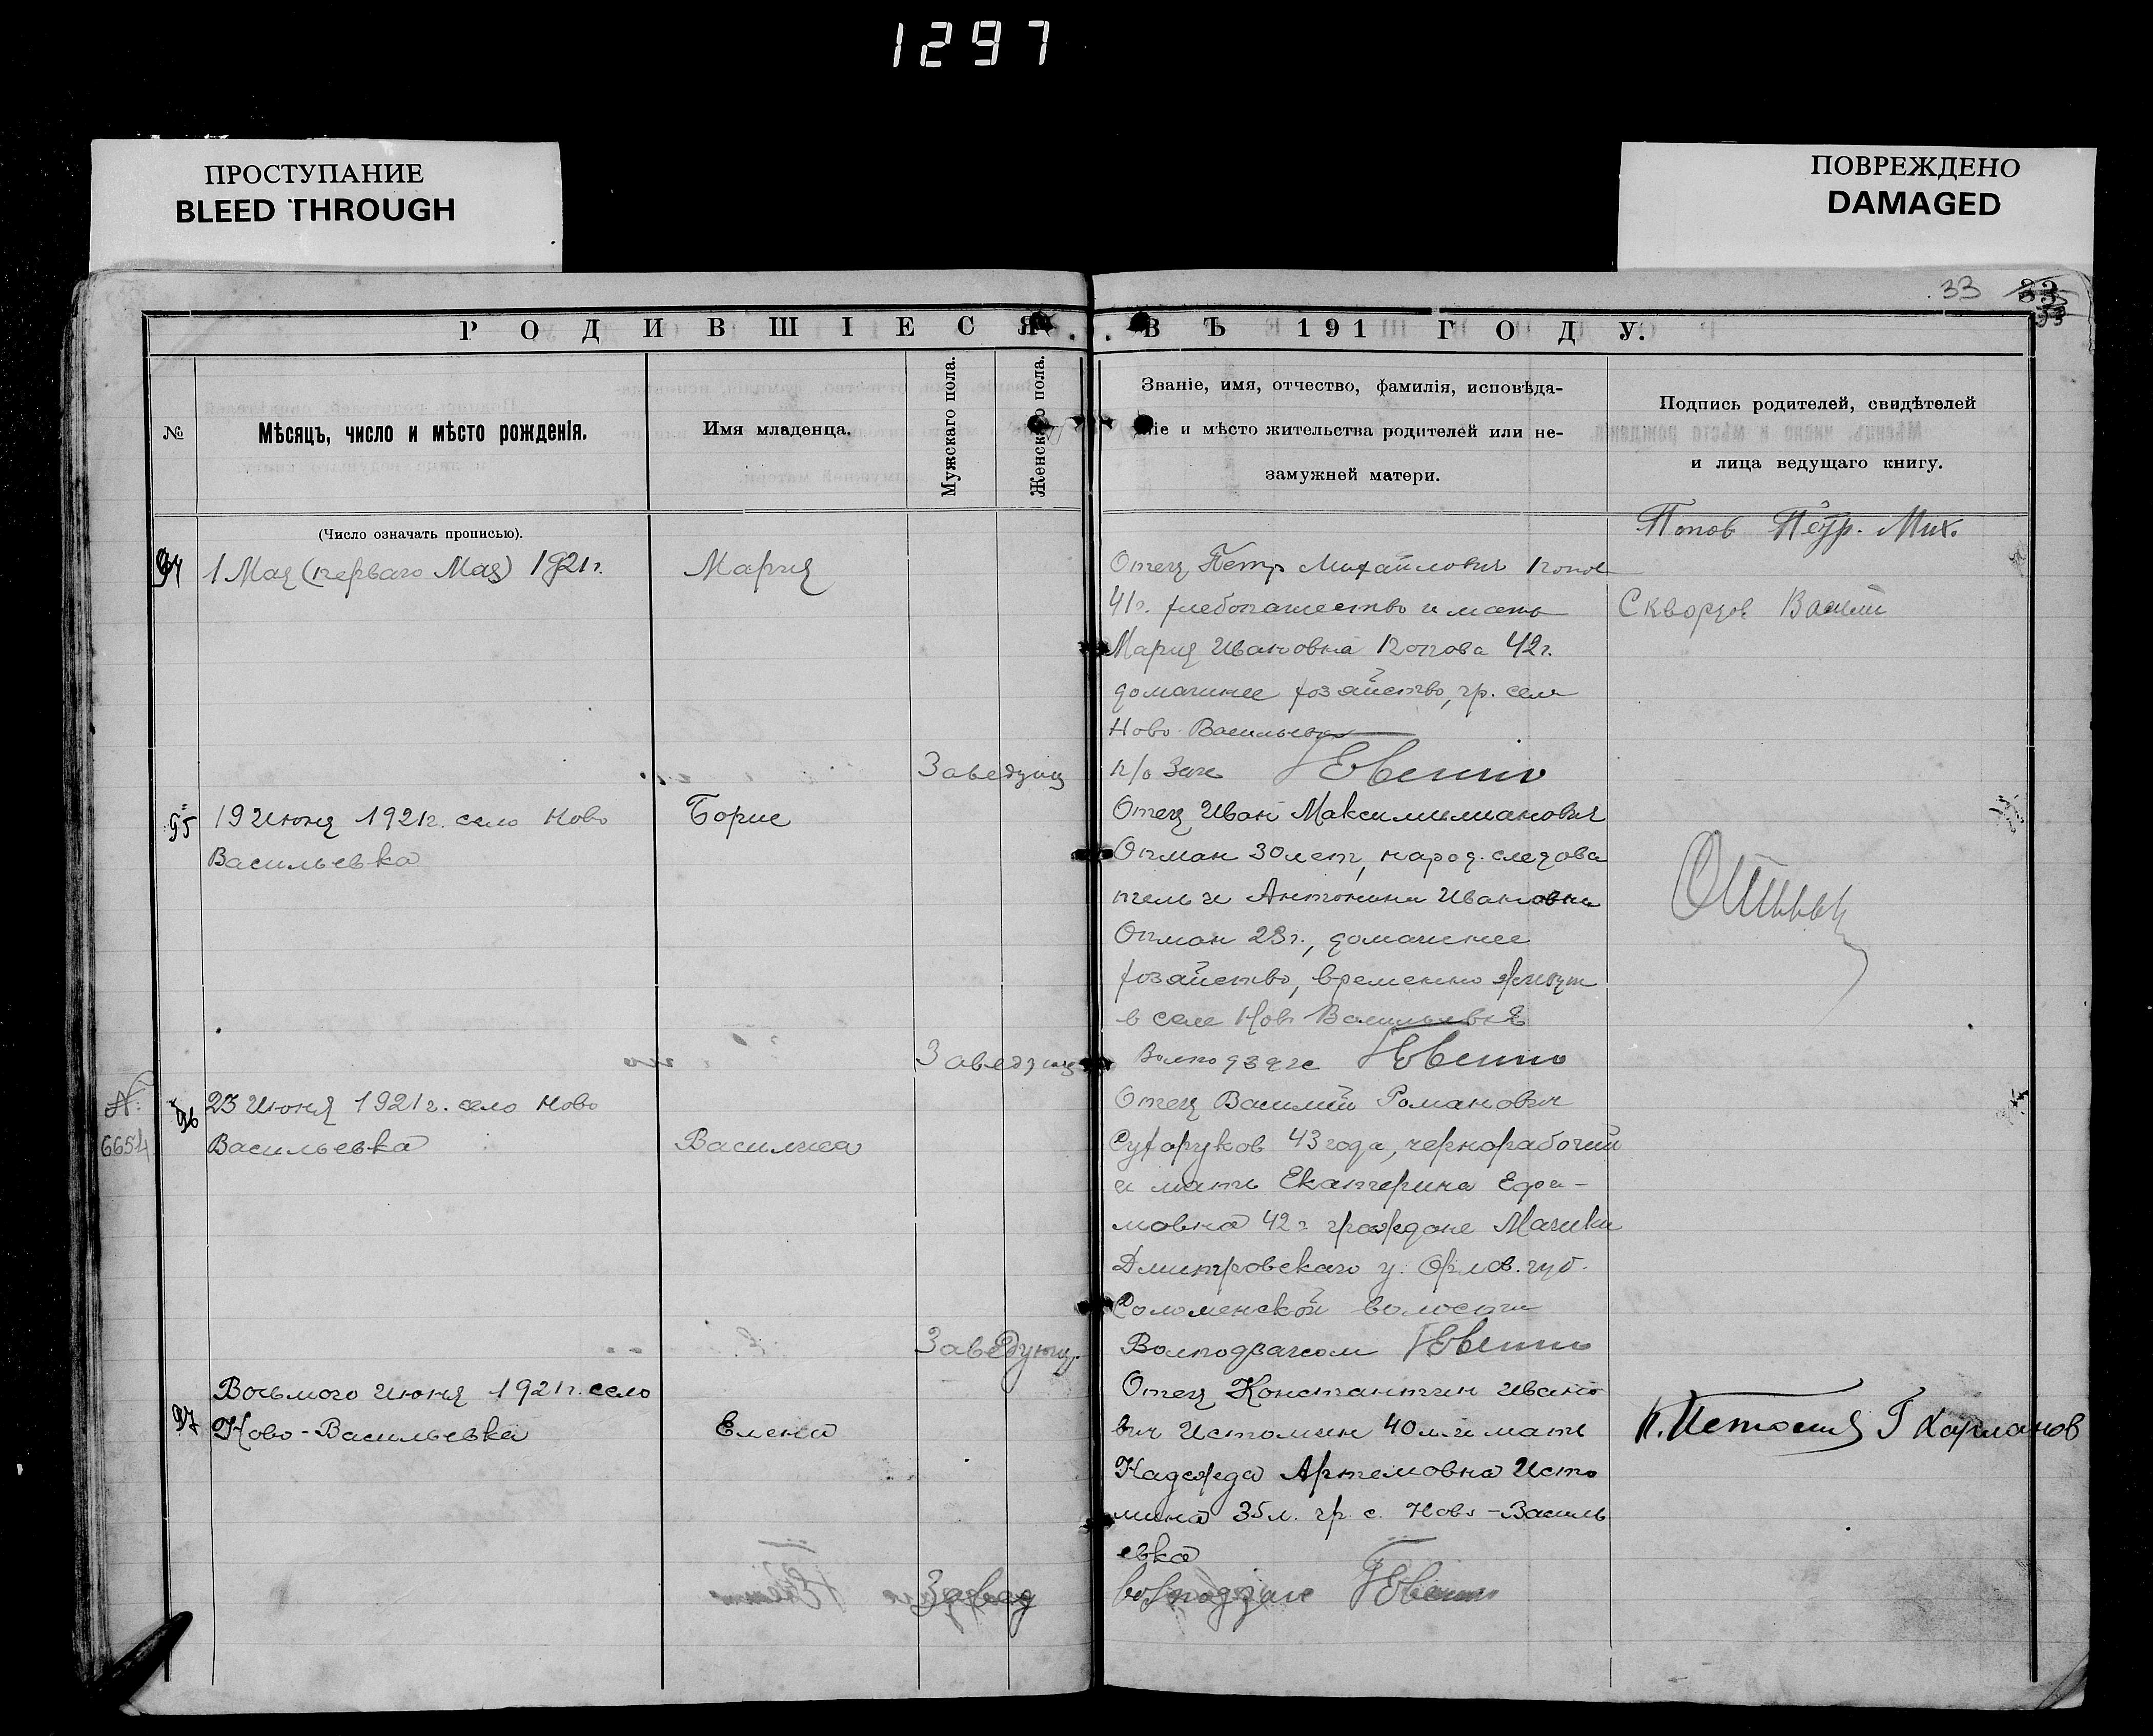 1297
ПРОСТУПАНИЕ
BLEED THROUGH
ПОВРЕЖДЕНО
DAMAGED
33
РОДИВШІЕСЯ ВЪ 191 ГОДУ.
№
Мѣсяцъ, число и мѣсто рожденія.
Имя младенца.
Мужскаго пола.
Женскаго пола.
Званіе, имя, отчество, фамилія, исповѣда-
ніе и мѣсто жительства родителей или не-
замужней матери.
Подпись родителей, свидѣтелей
и лица ведущаго книгу.
(Число означать прописью).
94
1 Мая (перваго Мая) 1921 г.
Мария
Отец Петр Михайлович Попов
41 г. хлебопашество и мать
Мария Ивановна Попова 42 г.
домашнее хозяйство, гр. села
Ново Васильевка
Попов Петр. Мих.
Скворцов Васили
Заведующ
п/о Заге
95
19 Июня 1921 г. село Ново
Васильевка
Борис
Отец Иван Максимилианович
Отман 30 лет, народ. следова
тель и Антонина Ивановна
Отман 28 г., домашнее
хозяйство, временно живут
в селе Нов Васильевке
Заведующ
№
6654
96
23 Июня 1921 г. село Ново
Васильевка
Василиса
Отец Василий Романович
Сухоруков 43 года, чернорабочий
и мать Екатерина Ефи-
мовна 42 г. граждане
Дмитровскаго у. Орлов. губ.
Соломенской волости
Заведующ.
97
Восьмого Июня 1921 г. село
Ново-Васильевка
Елена
Отец Константин Ивано
вич Истомин 40 л. и мать
Надежда Артемовна Исто
мина 35 л. гр. с. Ново-Василь
евка
К. Истомин Г Карманов
Завед